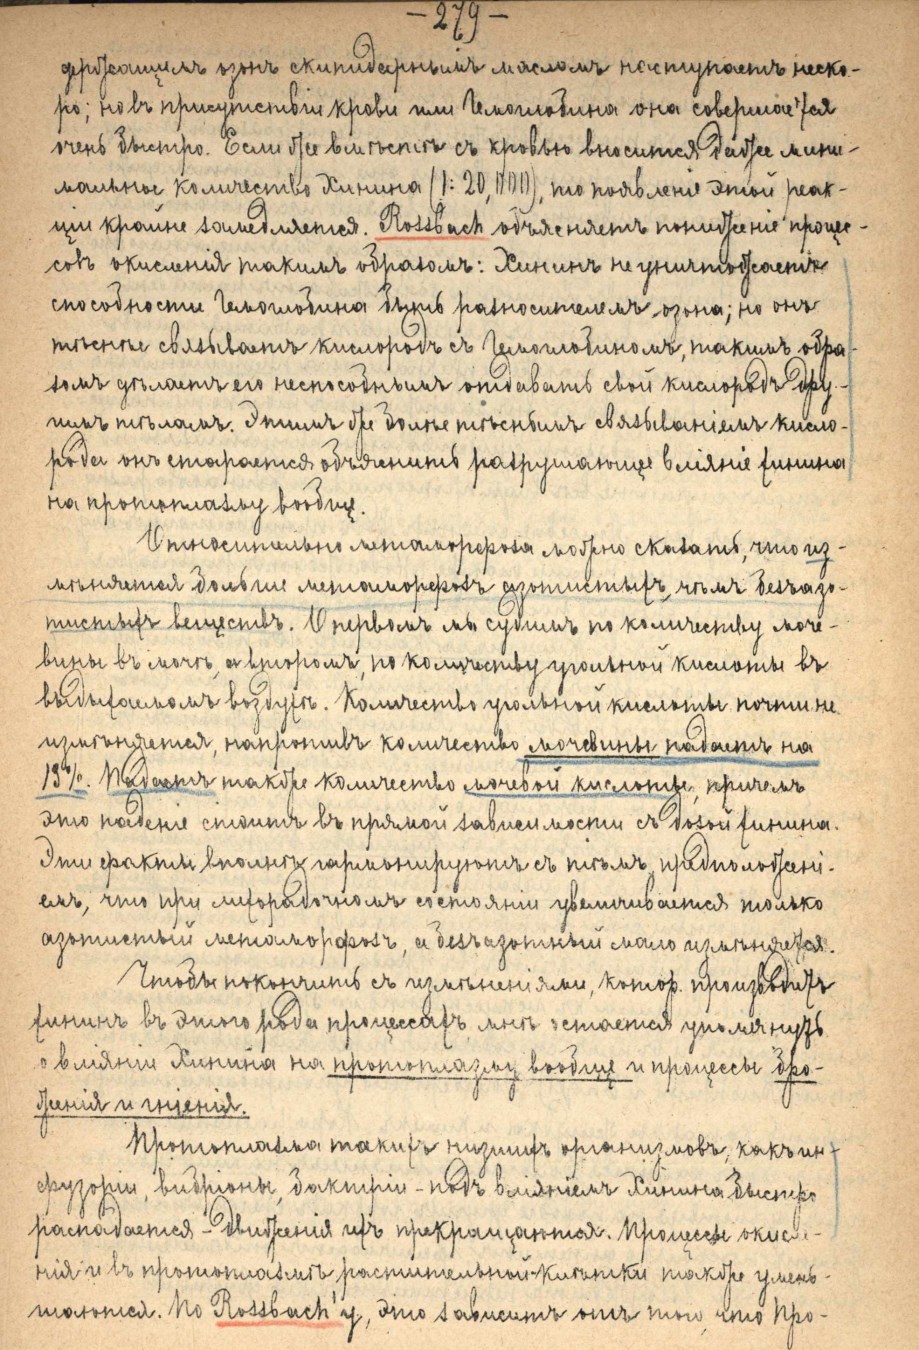 — 279 —
держащимъ озонъ скипидарнымъ масломъ наступаетъ неско-
ро; но въ присутствіи крови или Гемоглобина она совершается
очень быстро. Если же вмѣстѣ съ кровью вносится даже мини-
мальное количество Хинина (1:20,000), то появленіе этой реак-
ціи крайне замедляется. Rossbach объясняетъ пониженіе процес-
совъ окисленія такимъ образомъ: Хининъ не уничтожаетъ
способности Гемоглобина быть разносителемъ озона; но онъ
тѣснѣе связываетъ кислородъ съ Гемоглобиномъ, такимъ обра-
зомъ дѣлаетъ его неспособнымъ отдавать свой кислородъ дру-
гимъ тѣламъ. Этимъ же болѣе тѣснымъ связываніемъ кисло-
рода онъ старается объяснить разрушающее вліяніе хинина
на протоплазму вообще.
Относительно метаморфоза можно сказать, что из-
мѣняется больше метаморфозъ азотистыхъ, чѣмъ безъазо-
тистыхъ веществъ. О первомъ мы судимъ по количеству моче-
вины въ мочѣ, а второмъ, по количеству угольной кислоты въ
выдыхаемомъ воздухѣ. Количество угольной кислоты почти не
измѣняется, напротивъ количество мочевины падаетъ на
19%. Падаетъ также количество мочевой кислоты, причемъ
это паденіе стоитъ въ прямой зависимости съ дозой хинина.
Эти факты вполнѣ гармонируютъ съ тѣмъ предположені-
емъ, что при лихорадочномъ состояніи увеличивается только
азотистый метаморфозъ, а безъазотный мало измѣняется.
Чтобы покончить съ измѣненіями, котор. производитъ
хининъ въ этого рода процессахъ, мнѣ остается упомянуть
о вліяніи Хинина на протоплазму вообще и процессы бро-
женія и гніенія.
Протоплазма такихъ низшихъ организмовъ, какъ ин-
фузоріи, вибріоны, бактріи – подъ вліяніемъ Хинина быстро
распадается – движенія ихъ прекращаются. Процессы окисле-
нія и въ протоплазмѣ растительной клѣтки также умень-
шаются. По Rossbach'у, это зависитъ отъ того, что про-